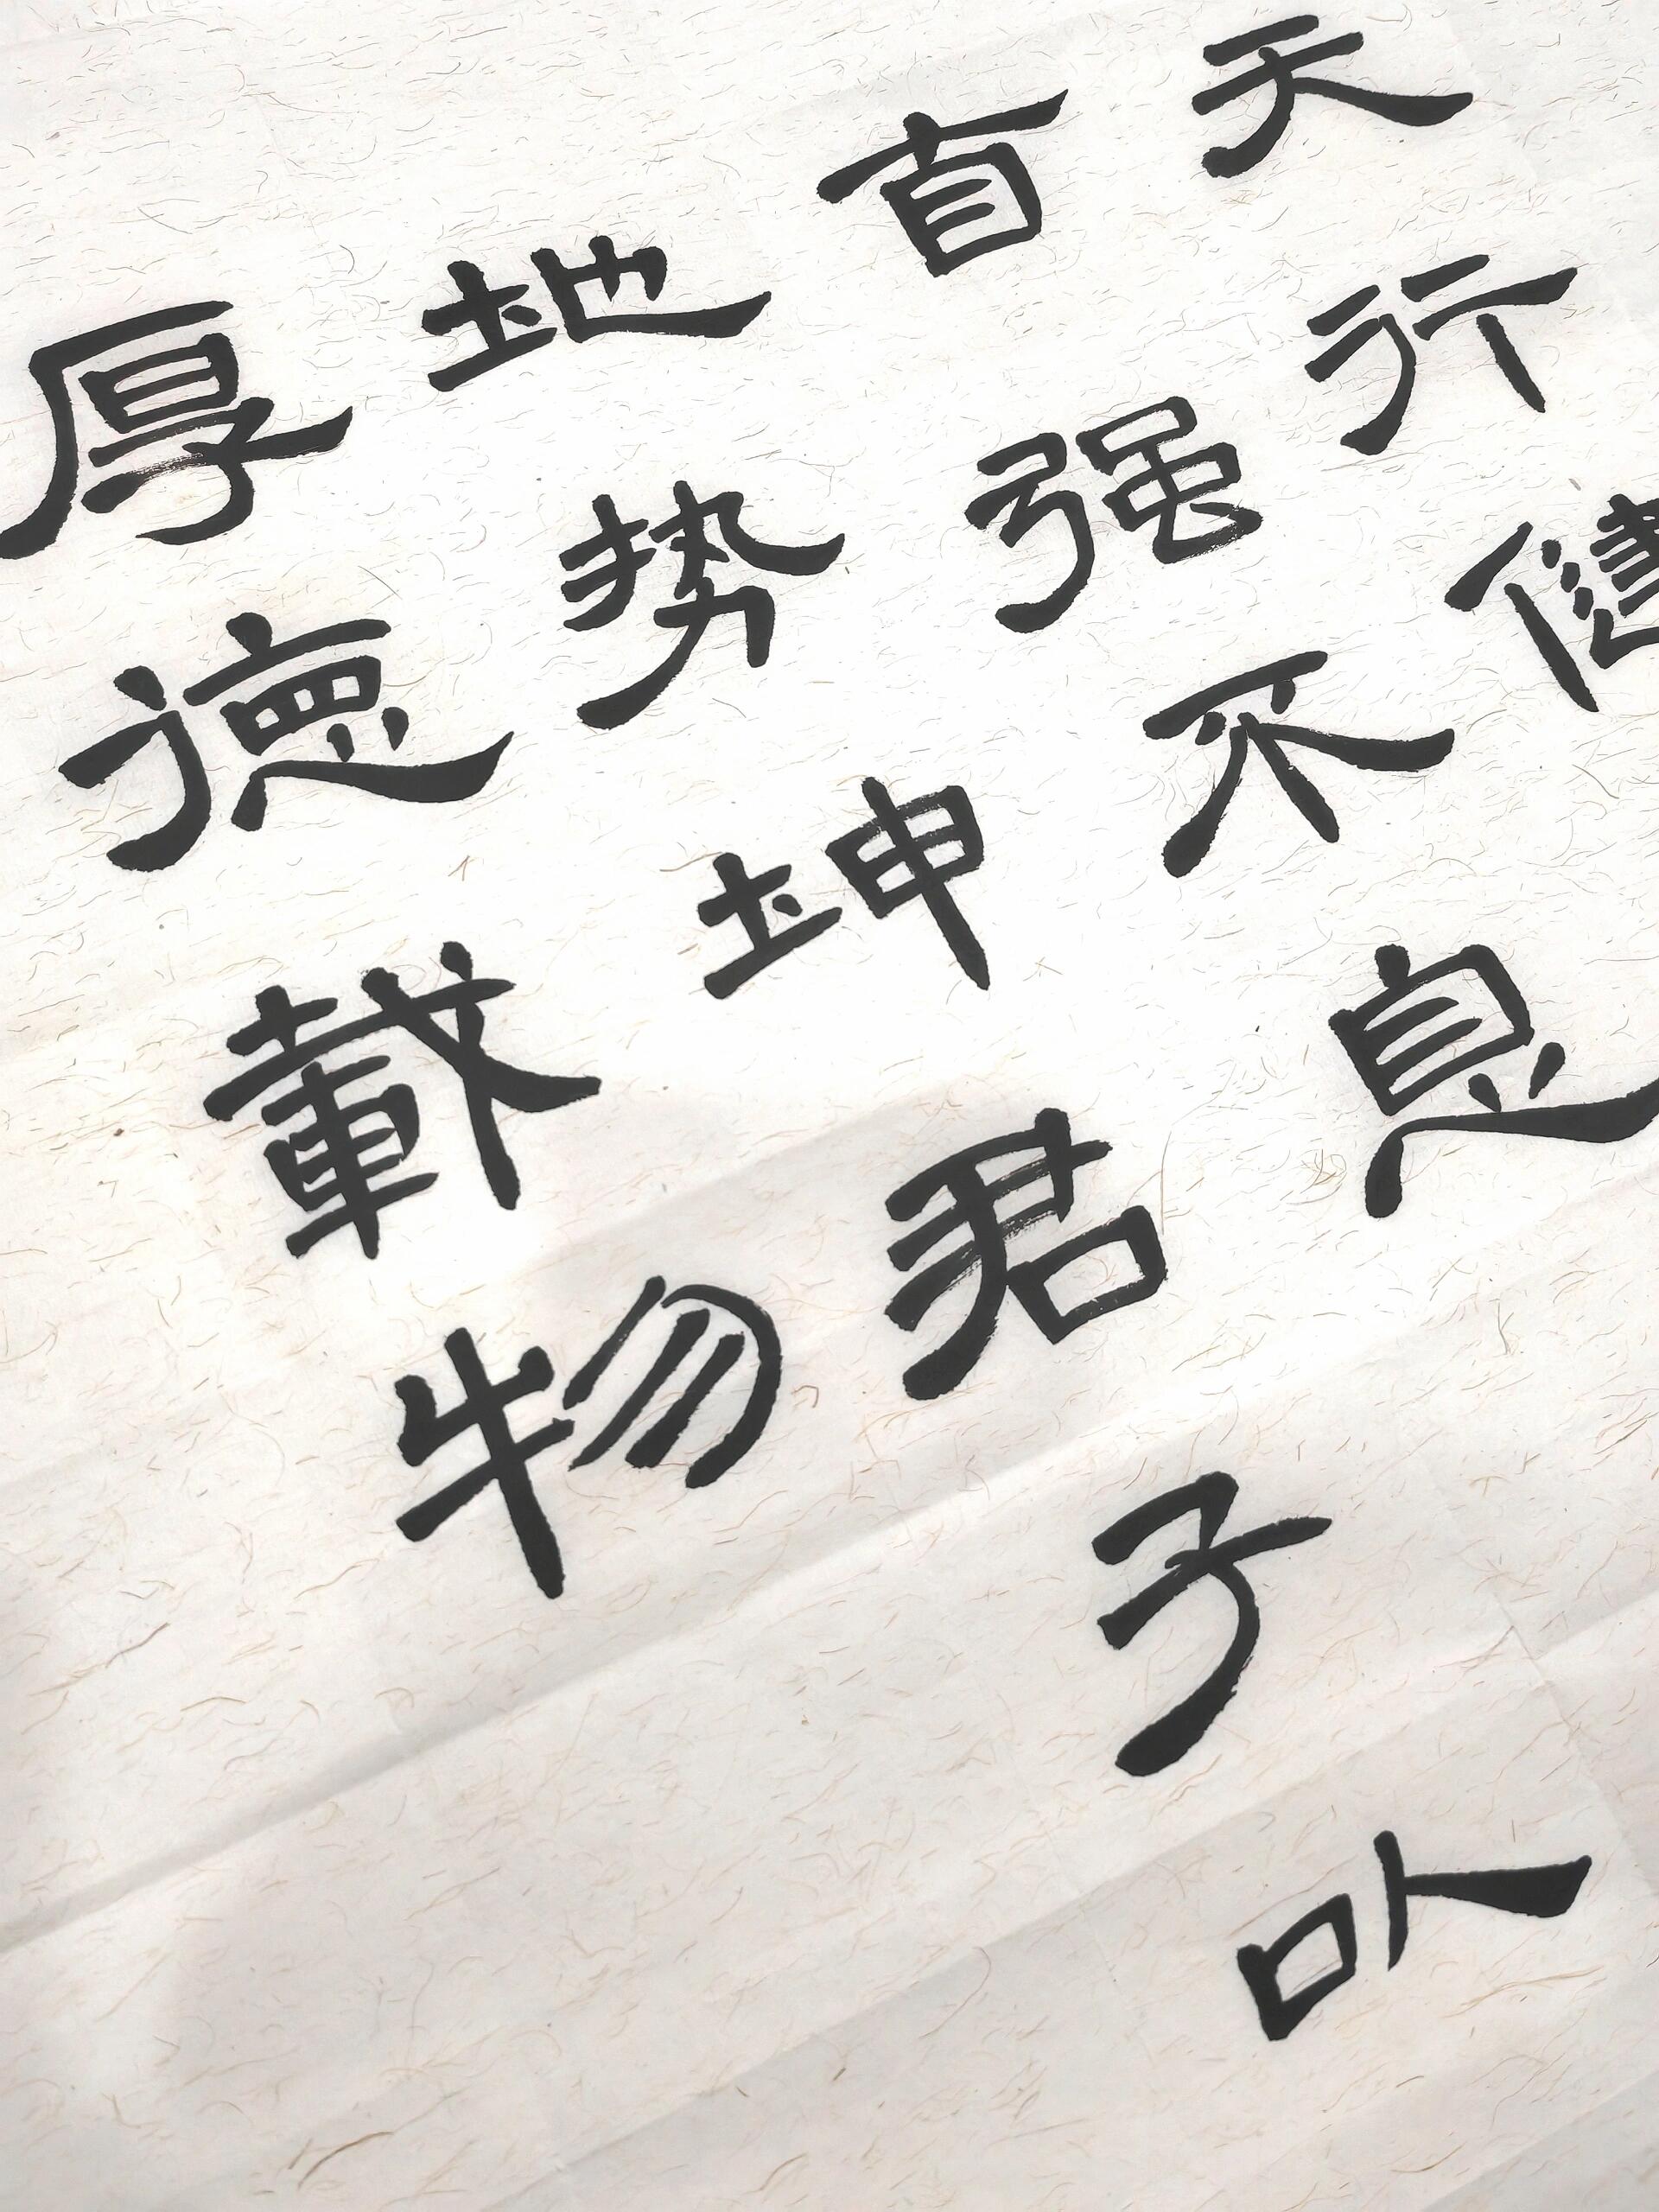 天行健
自强不息
地势坤君子以
厚德載物